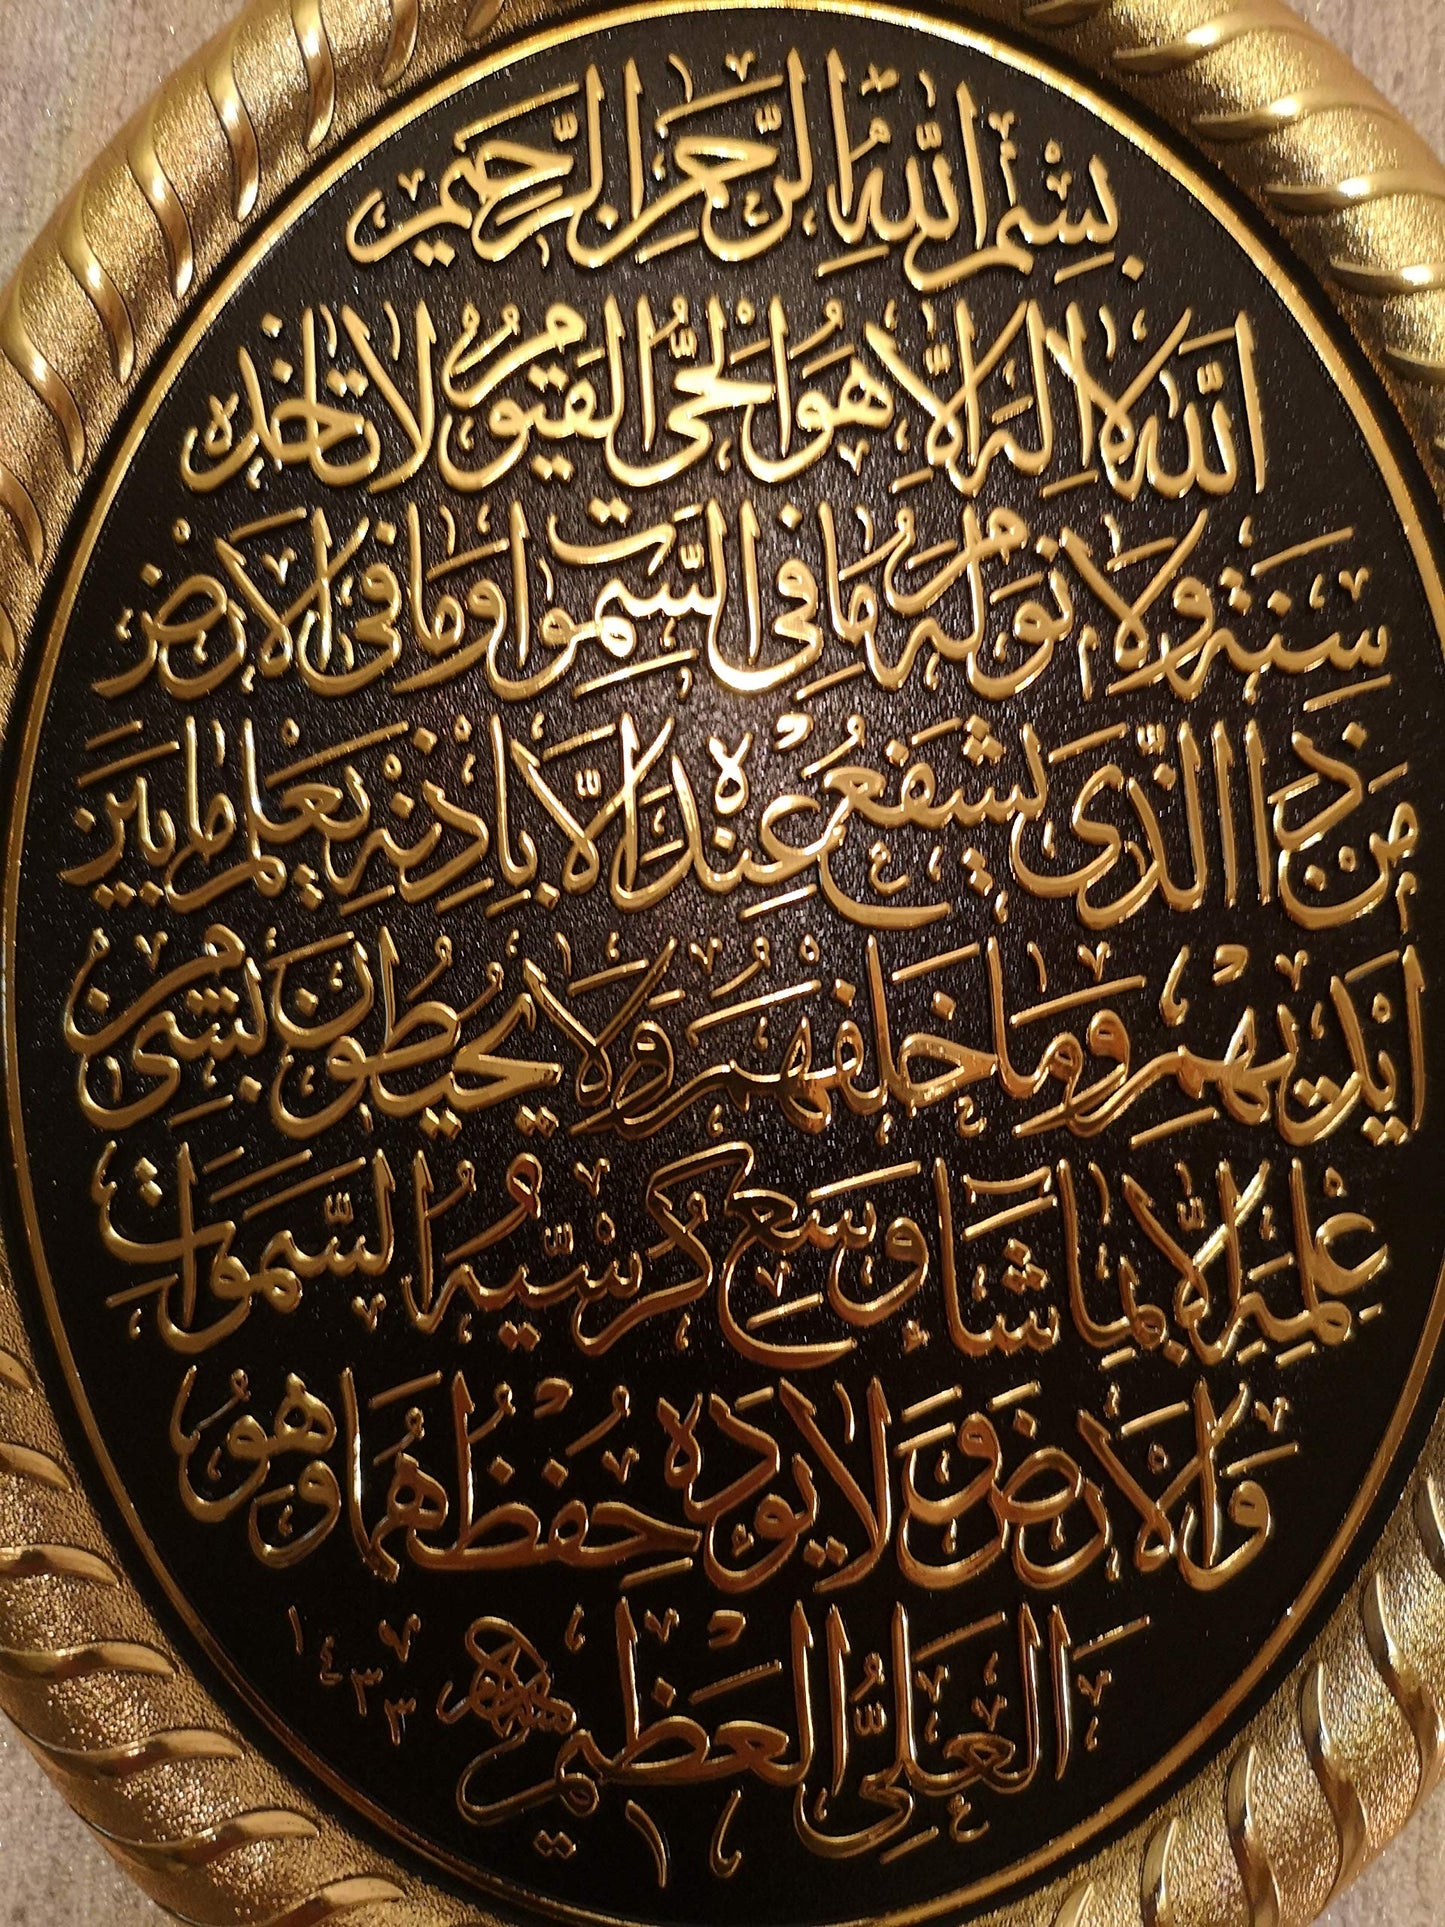 بِسْمِ اللّٰهِ الرَّحْمٰنِ الرَّحِيمِ
اَللّٰهُ لَا اِلٰهَ اِلَّا هُوَ الْحَيُّ الْقَيُّومُ لَا تَأْخُذُهُ
سِنَةٌ وَلَا نَوْمٌ لَهُ مَا فِي السَّمٰوَاتِ وَمَا فِي الْاَرْضِ
مَنْ ذَا الَّذِي يَشْفَعُ عِنْدَهُ اِلَّا بِاِذْنِهِ يَعْلَمُ مَا بَيْنَ
اَيْدِيهِمْ وَمَا خَلْفَهُمْ وَلَا يُحِيطُونَ بِشَيْءٍ مِنْ
عِلْمِهِ اِلَّا بِمَا شَاءَ وَسِعَ كُرْسِيُّهُ السَّمٰوَاتِ
وَالْاَرْضَ وَلَا يَؤُدُهُ حِفْظُهُمَا وَهُوَ
الْعَلِيُّ الْعَظِيمُ
١٤٣٣